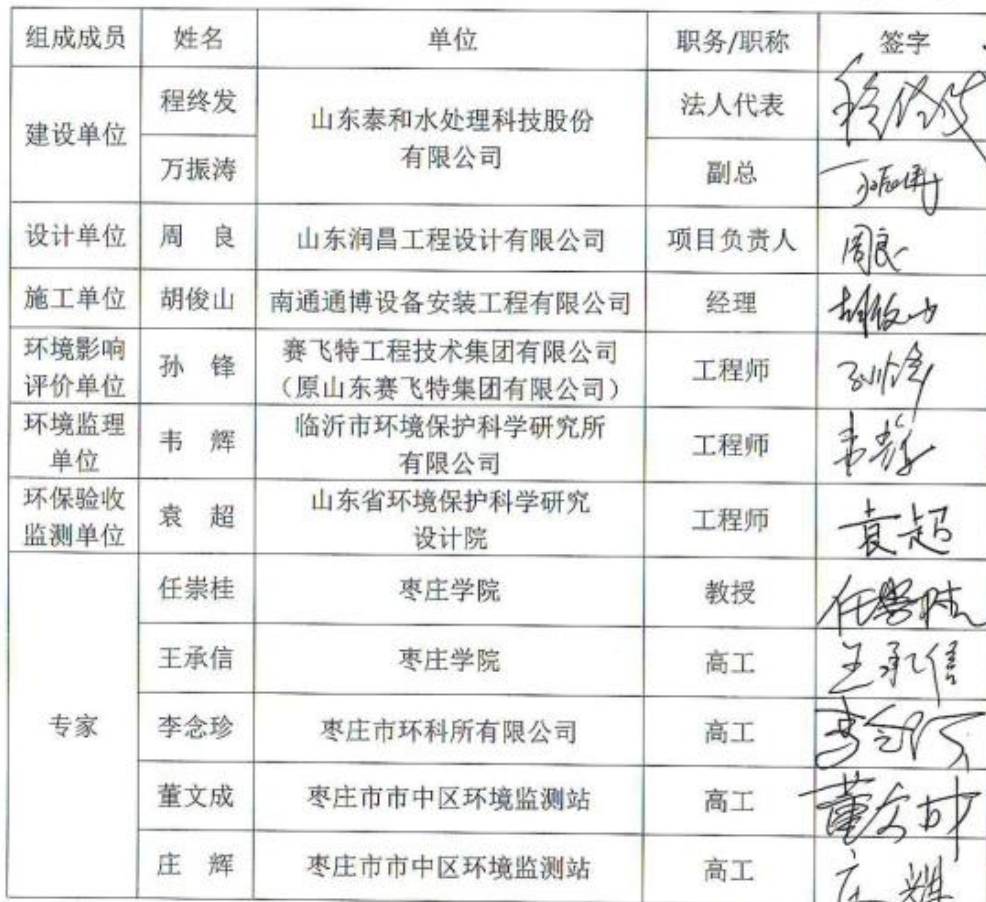 组成成员 姓名 单位 职务/职称 签字
建设单位 程终发 山东泰和水处理科技股份有限公司 法人代表 程终发
万振涛 副总 万振涛
设计单位 周 良 山东润昌工程设计有限公司 项目负责人 周良
施工单位 胡俊山 南通通博设备安装工程有限公司 经理 胡俊山
环境影响
评价单位 孙 锋 赛飞特工程技术集团有限公司
（原山东赛飞特集团有限公司） 工程师 孙锋
环境监理
单位 韦 辉 临沂市环境保护科学研究所
有限公司 工程师 韦辉
环保验收
监测单位 袁 超 山东省环境保护科学研究
设计院 工程师 袁超
专家 任崇桂 枣庄学院 教授 任崇桂
王承信 枣庄学院 高工 王承信
李念珍 枣庄市环科所有限公司 高工 李念珍
董文成 枣庄市市中区环境监测站 高工 董文成
庄 辉 枣庄市市中区环境监测站 高工 庄辉